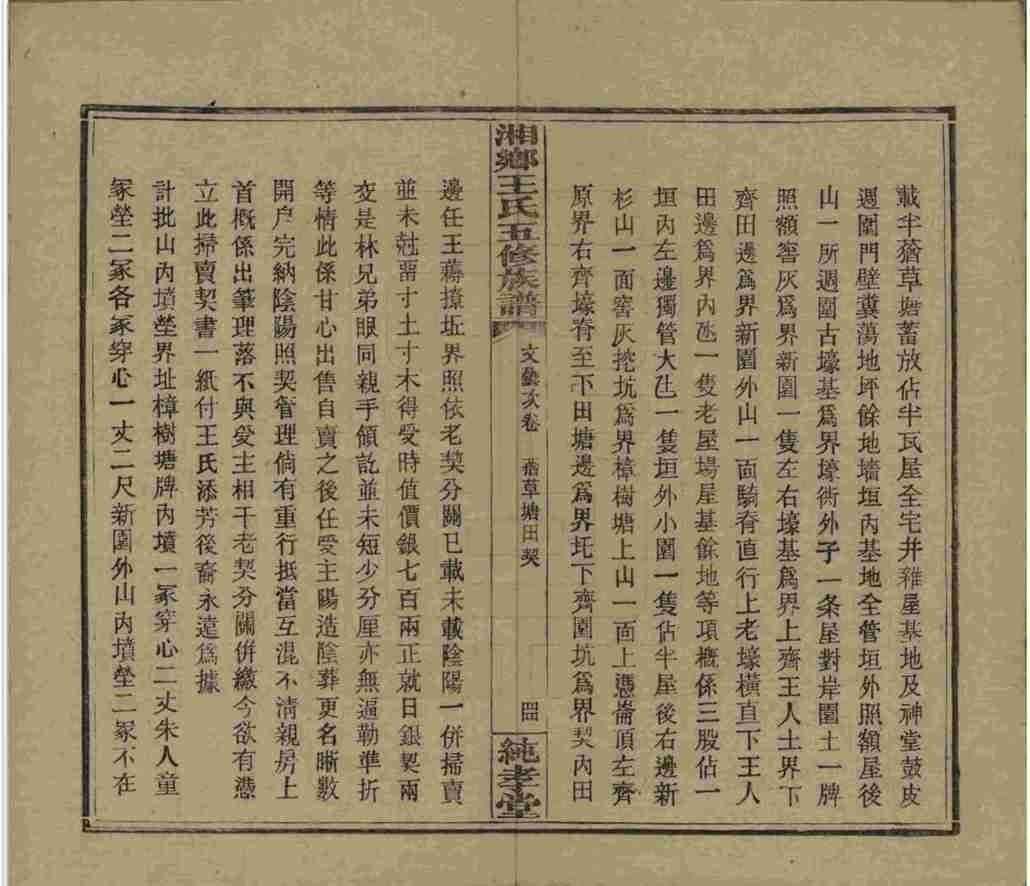 載半蕕草塘蓄放佔半瓦屋全宅并雜屋基地及神堂鼓皮
週圍門壁糞蕩地坪餘地墻垣內基地全管垣外照額屋後
山一所週圍古壕基爲界壕衖外子一条屋對岸園土一牌
照額窖灰爲界新園一隻左右壕基爲界上齊王人土界下
齊田邊爲界新園外山一面騎脊直行上老壕橫直下王人
田邊爲界內一隻老屋場屋基餘地等項概係三股佔一
垣內左邊獨管大一隻垣外小園一隻佔半屋後右邊新
杉山一面窖灰挖坑爲界樟樹塘上山一面上憑崙頂左齊
原界右齊壕脊至下田塘邊爲界圫下齊園坑爲界契內田
湘鄉王氏五修族譜
文藝次卷
草塘田契
純孝堂
邊任王蕣撩坵界照依老契分關已載未載陰陽一併掃賣
並未尅畱寸土寸木得受時值價銀七百兩正就日銀契兩
交是林兄弟眼同親手領訖並未短少分厘亦無逼勒準折
等情此係甘心出售自賣之後任受主陽造陰葬更名晰數
開戶完納陰陽照契管理倘有重行抵當互混不清親房上
首概係出筆理落不與受主相干老契分關併繳今欲有憑
立此掃賣契書一紙付王氏添芳後裔永遠爲據
計批山內墳塋界址樟樹塘牌內墳一冢穿心二丈朱人童
冢塋二冢各冢穿心一丈二尺新園外山內墳塋二冢不在